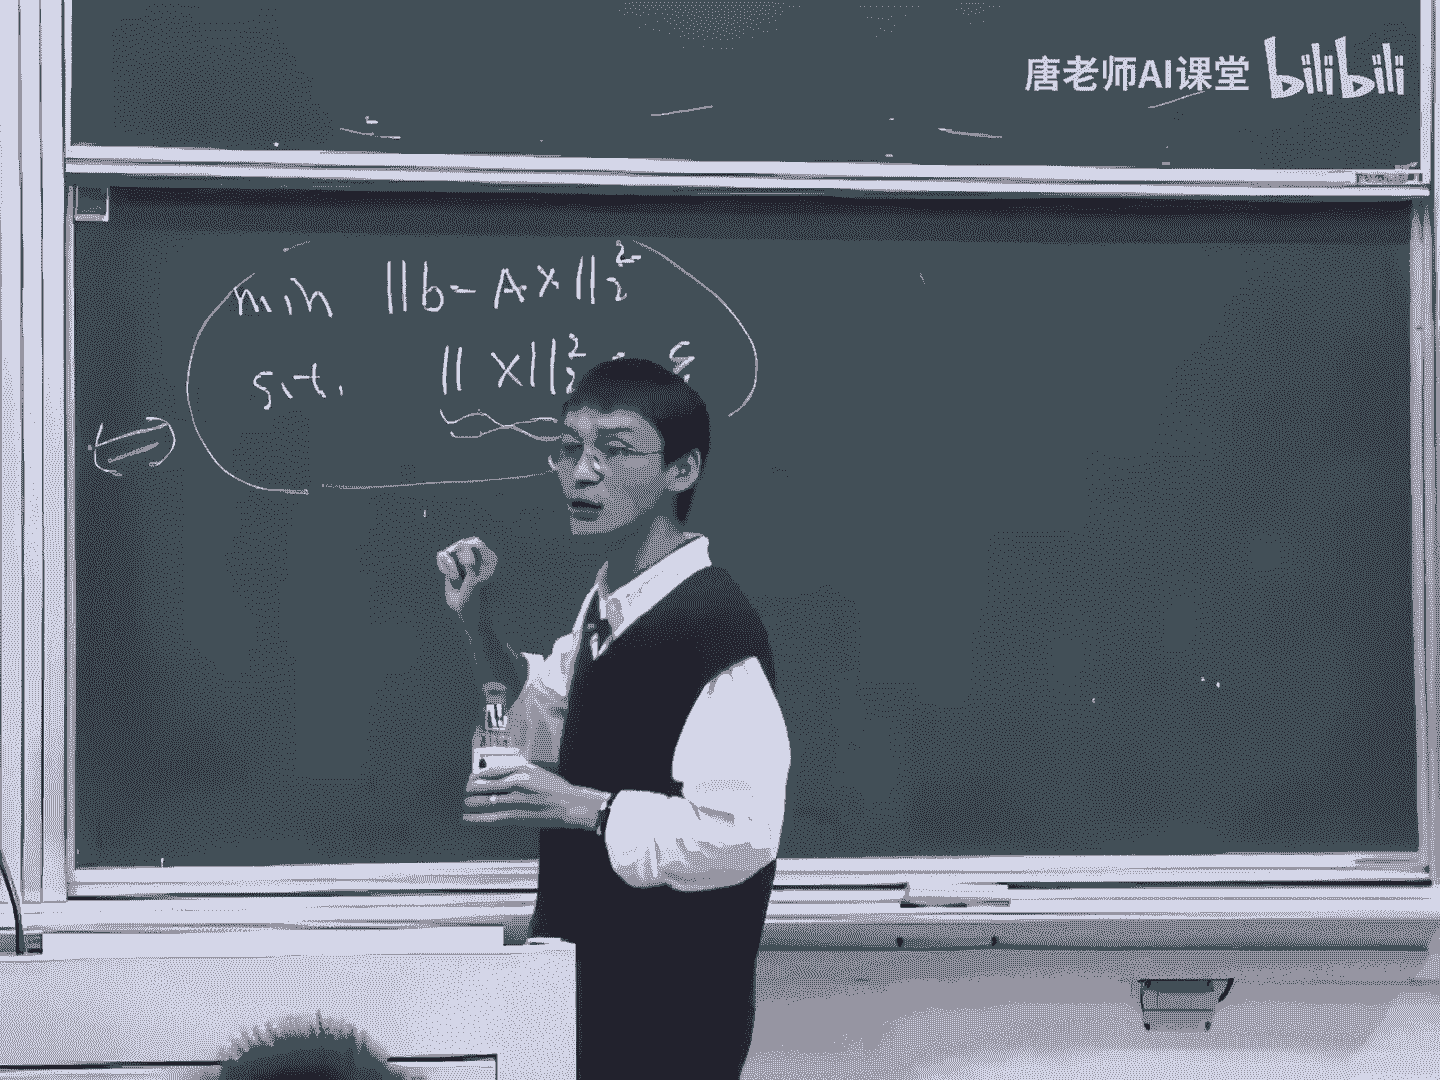 唐老师AI课堂 bilibili
min ||b-Ax||₂²
s.t. ||x||₂² ε